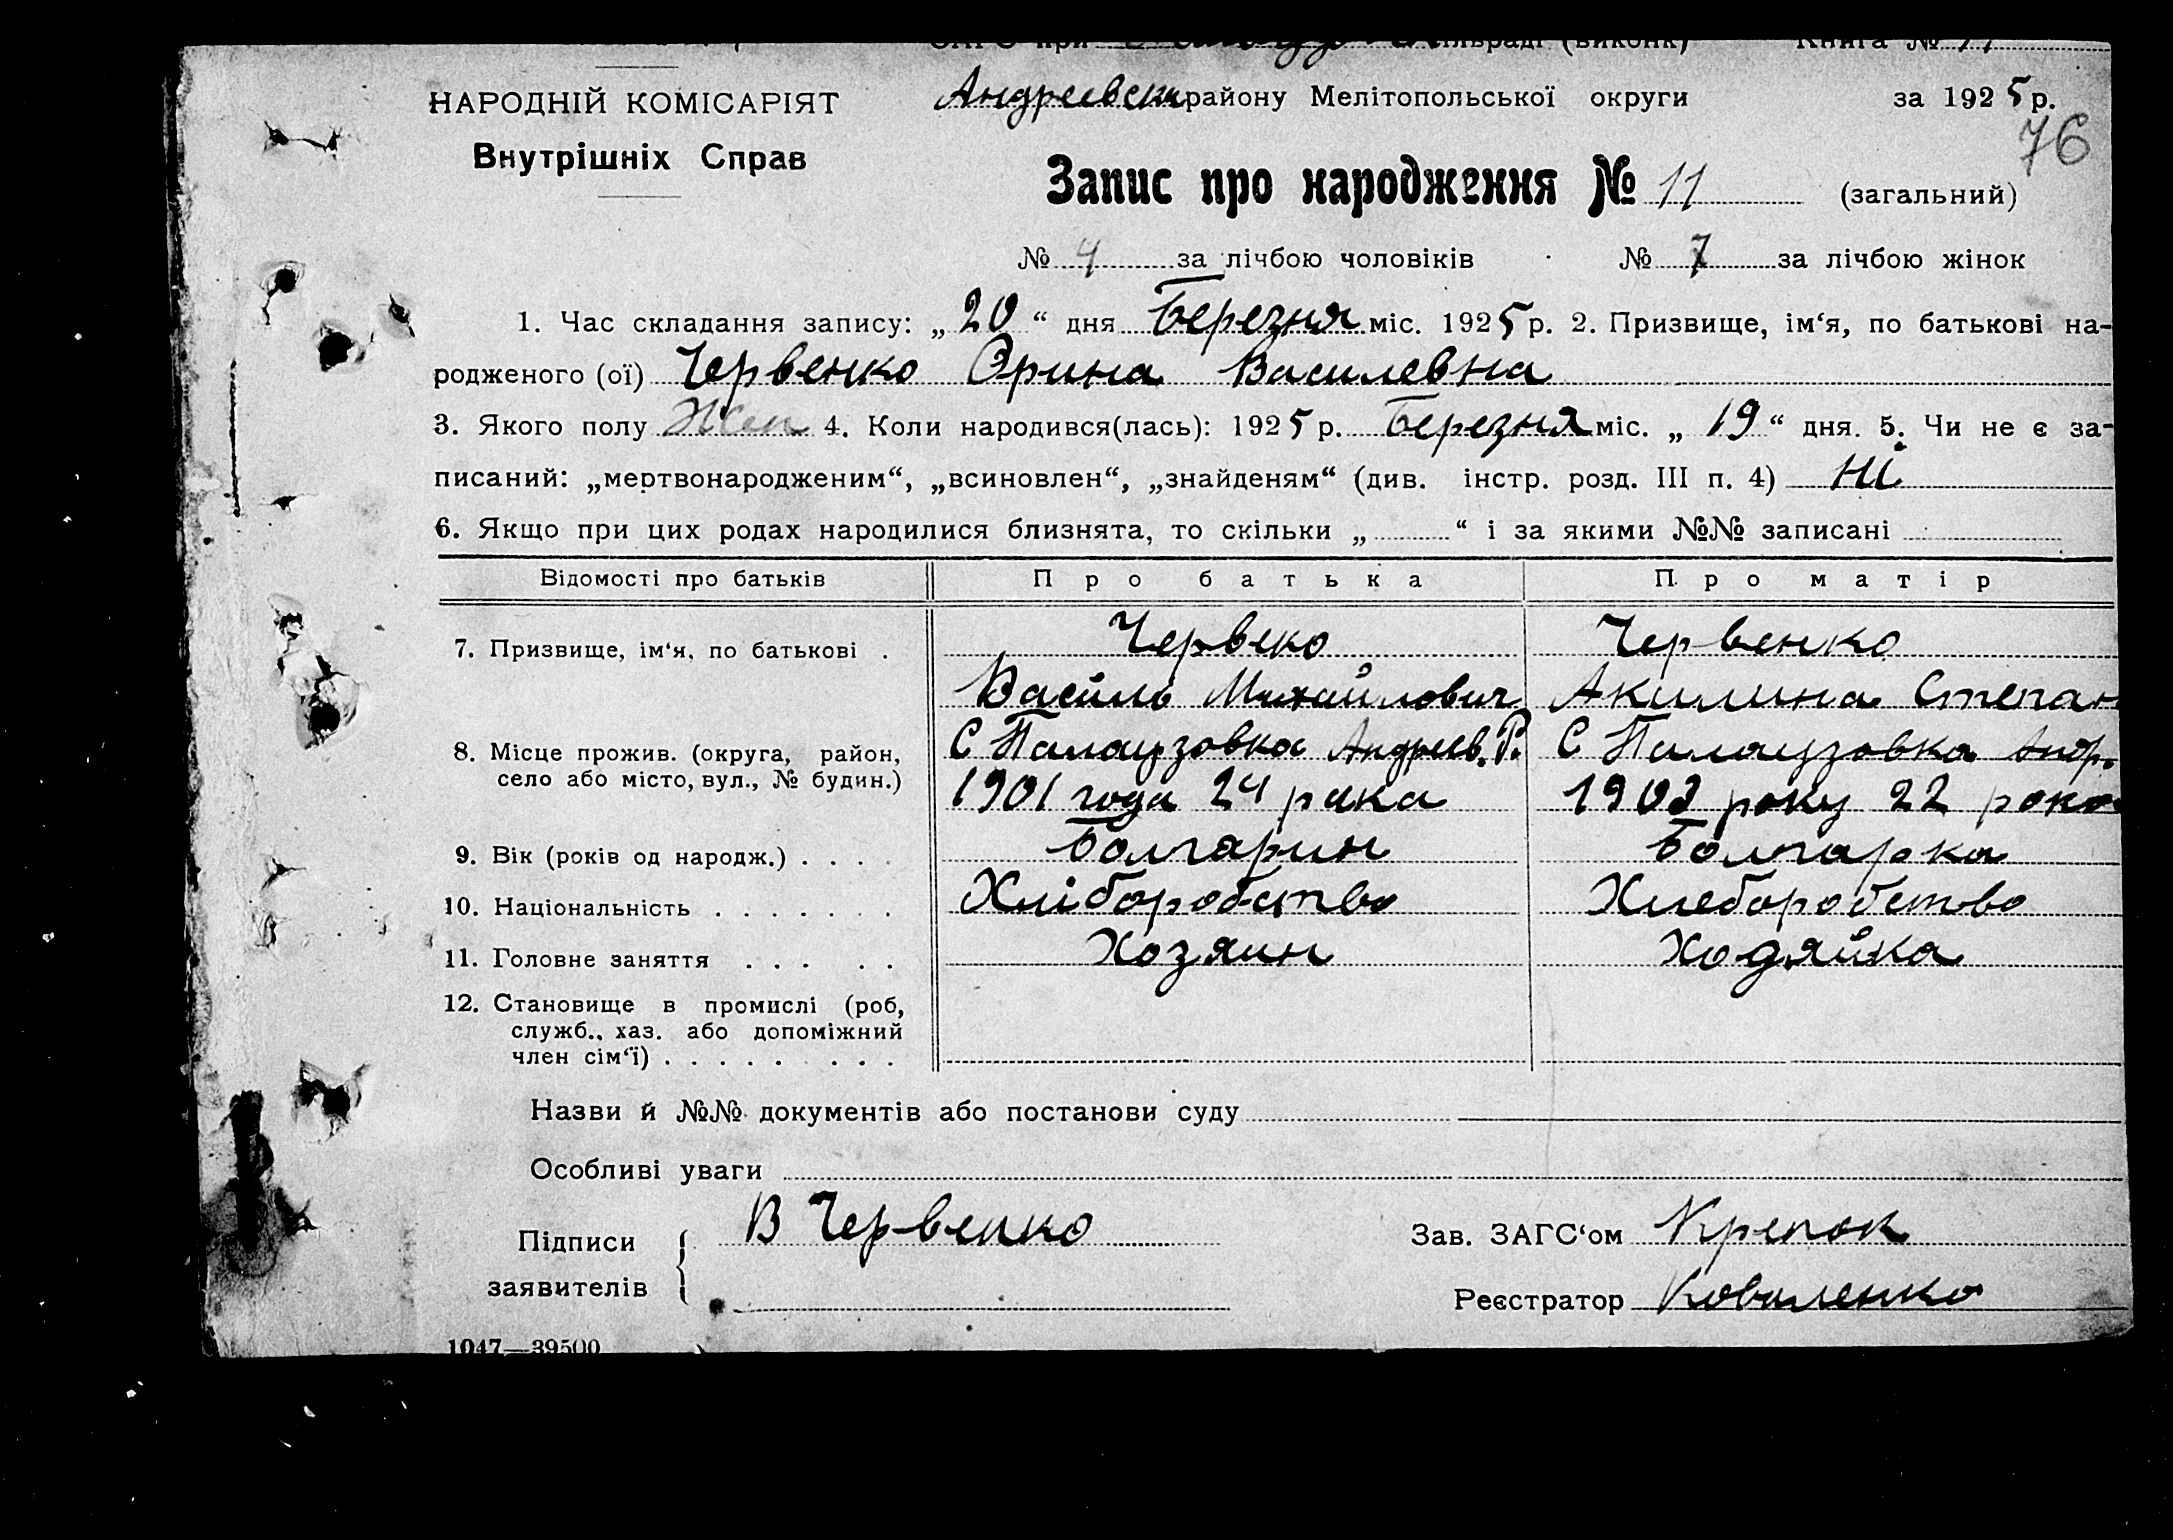 ЗАГС при сільраді (виконк) Книга № 11
НАРОДНІЙ КОМІСАРІЯТ
Внутрішніх Справ
Андреевськ району Мелітопольської округи за 1925 р.
76
Запис про народження № 11 (загальний)
№ 4 за лічбою чоловіків № 7 за лічбою жінок
1. Час складання запису: „20“ дня Березня міс. 1925 р. 2. Призвище, ім‘я, по батькові на-
родженого (ої) Червенко Орина Василевна
3. Якого полу Жен 4. Коли народився(лась): 1925 р. Березня міс. „19“ дня. 5. Чи не є за-
писаний: „мертвонародженим“, „всиновлен“, „знайденям“ (див. інстр. розд. III п. 4) Ні
6. Якщо при цих родах народилися близнята, то скільки „ “ і за якими №№ записані
Відомості про батьків Про батька Про матір
7. Призвище, ім‘я, по батькові . Червеко Червенко
Василь Михайлович Акилина Степан
8. Місце прожив. (округа, район, С Палаузовка Андреев. Р. С Палаузовка Андр.
село або місто, вул., № будин.) 1901 года 24 рака 1903 року 22 рока
9. Вік (років од народж.) . . . . Болгарин Болгарка
10. Національність . . . . . . . Хліборобство Хлеборобство
11. Головне заняття . . . . . Хозяин Ходяйка
12. Становище в промислі (роб,
служб., хаз. або допоміжний
член сім‘ї) . . . . . . . . .
Назви й №№ документів або постанови суду
Особливі уваги
Підписи заявителів В Червенко
Зав. ЗАГС‘ом Крепак
Реєстратор Коваленко
1047—39500